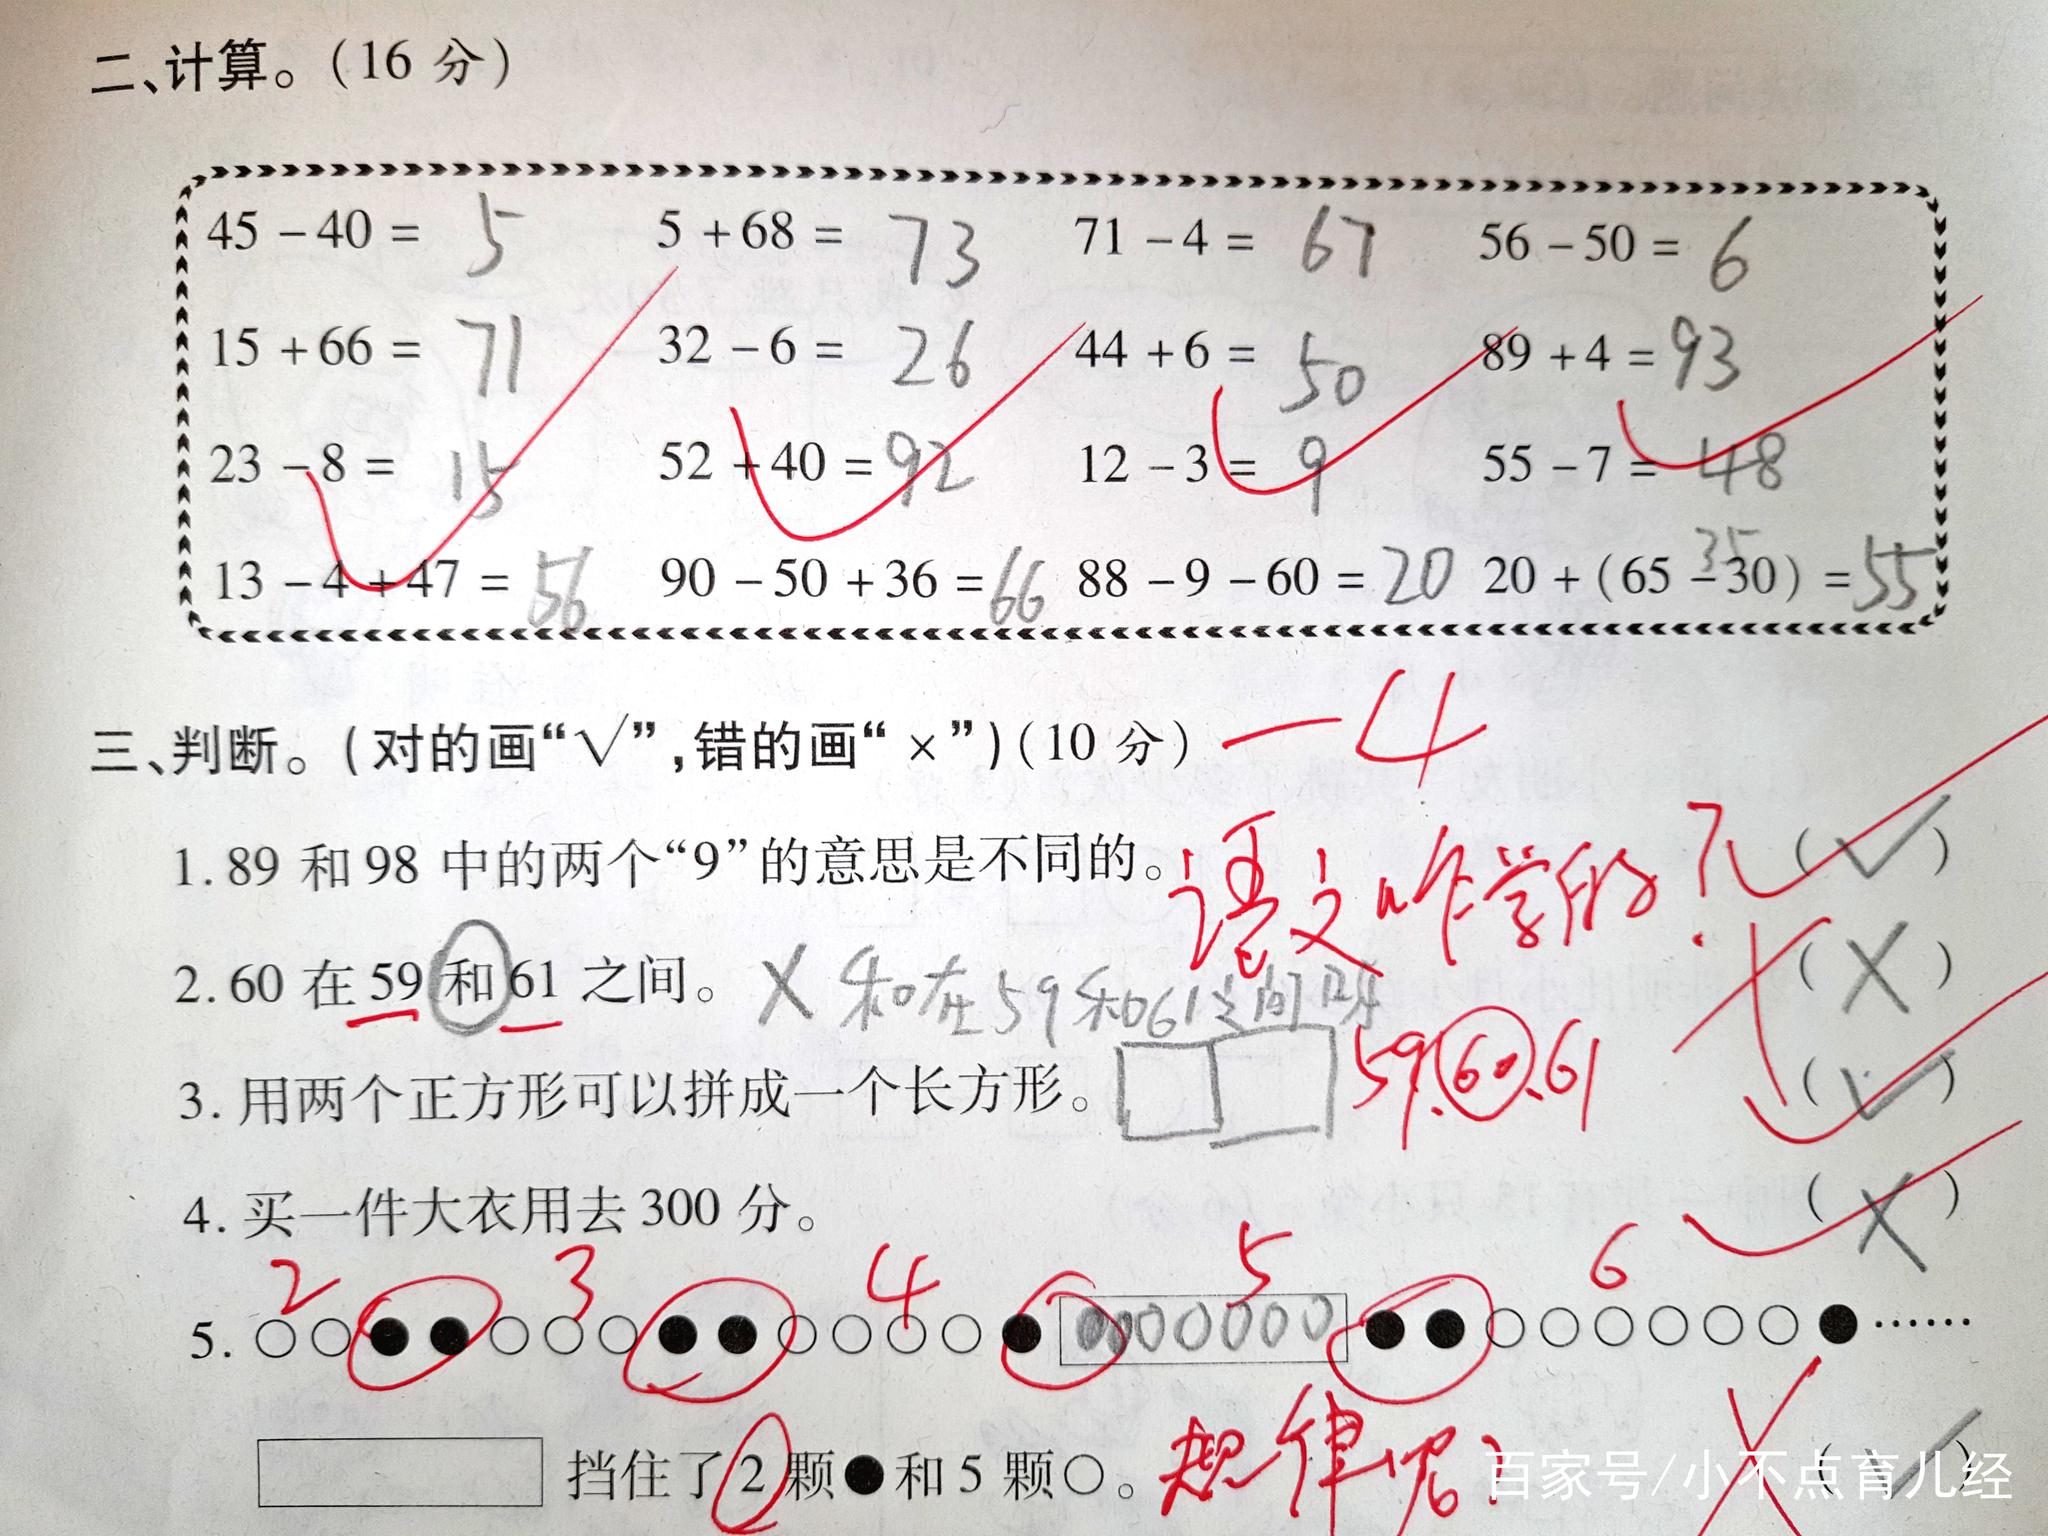 二、计算。(16 分)
45－40＝ 5 5＋68＝ 73 71－4＝ 67 56－50＝ 6
15＋66＝ 71 32－6＝ 26 44＋6＝ 50 89＋4＝93
23－8＝ 15 52＋40＝92 12－3＝ 9 55－7＝ 48
35
13－4＋47＝56 90－50＋36＝66 88－9－60＝20 20＋(65－30)＝55
三、判断。(对的画“√”,错的画“×”)(10 分) －4
1. 89 和 98 中的两个“9”的意思是不同的。 (√)
语文咋学的?
2. 60 在 59 和 61 之间。 X 和在59和61之间 (×)
59.60.61
3. 用两个正方形可以拼成一个长方形。 (√)
4. 买一件大衣用去 300 分。 (×)
2 3 4 5 6
5. ○○●●○○○●●○○○○●●●○○○○○●●○○○○○○●……
挡住了 2 颗●和 5 颗○。 规律呢? (√)
百家号/小不点育儿经